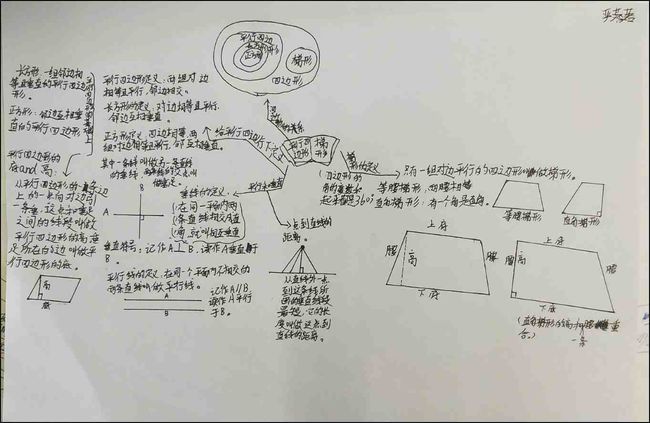 平行四边
长方形
正方形
梯形
四边形
长方形：一组邻边相
等且垂直的平行四边
形。
正方形：邻边互相垂
直的平行四边形
平行四边形的
底and高：
从平行四边形的一条边
上的一点向对边引
一条垂
之间的线段叫做
平行四边形的高，垂
足所在的边叫做平
行四边形的底。
高
底
平行四边形定义：两组对边
相等且平行，邻边相交。
长方形的定义：对边相等且平行，
邻边互相垂直。
正方形定义：四边相等，两
组对边相等且平行，邻边互相垂直。
给平行四边形下定义
其中一条线叫做另一条直线
的垂线，两条线的交点叫
做垂足。
A
B
垂线的定义：
(在同一平面内两
条直线相交成直
角，就叫做互相垂直
垂直符号：记作A⊥B，读作A垂直于
B。
平行线的定义：在同一个平面内不相交的
两条直线叫做平行线。
A
B
记作A∥B，
读作A平行
于B。
平行和垂直
平行四边形
梯形
点到直线的
距离。
从直线外一点
到这条线所
画的垂直线段
最短，它的长
度叫做这点到
直线的距离。
梯形的定义
只有一组对边平行的四边形叫做梯形。
等腰梯形：两腰相等
直角梯形：有一个角是直角。
(四边形的
360°
等腰梯形
直角梯形
上底
腰
高
腰
下底
上底
腰
高
腰
下底
(直角梯形的高和一条腰重
合。)